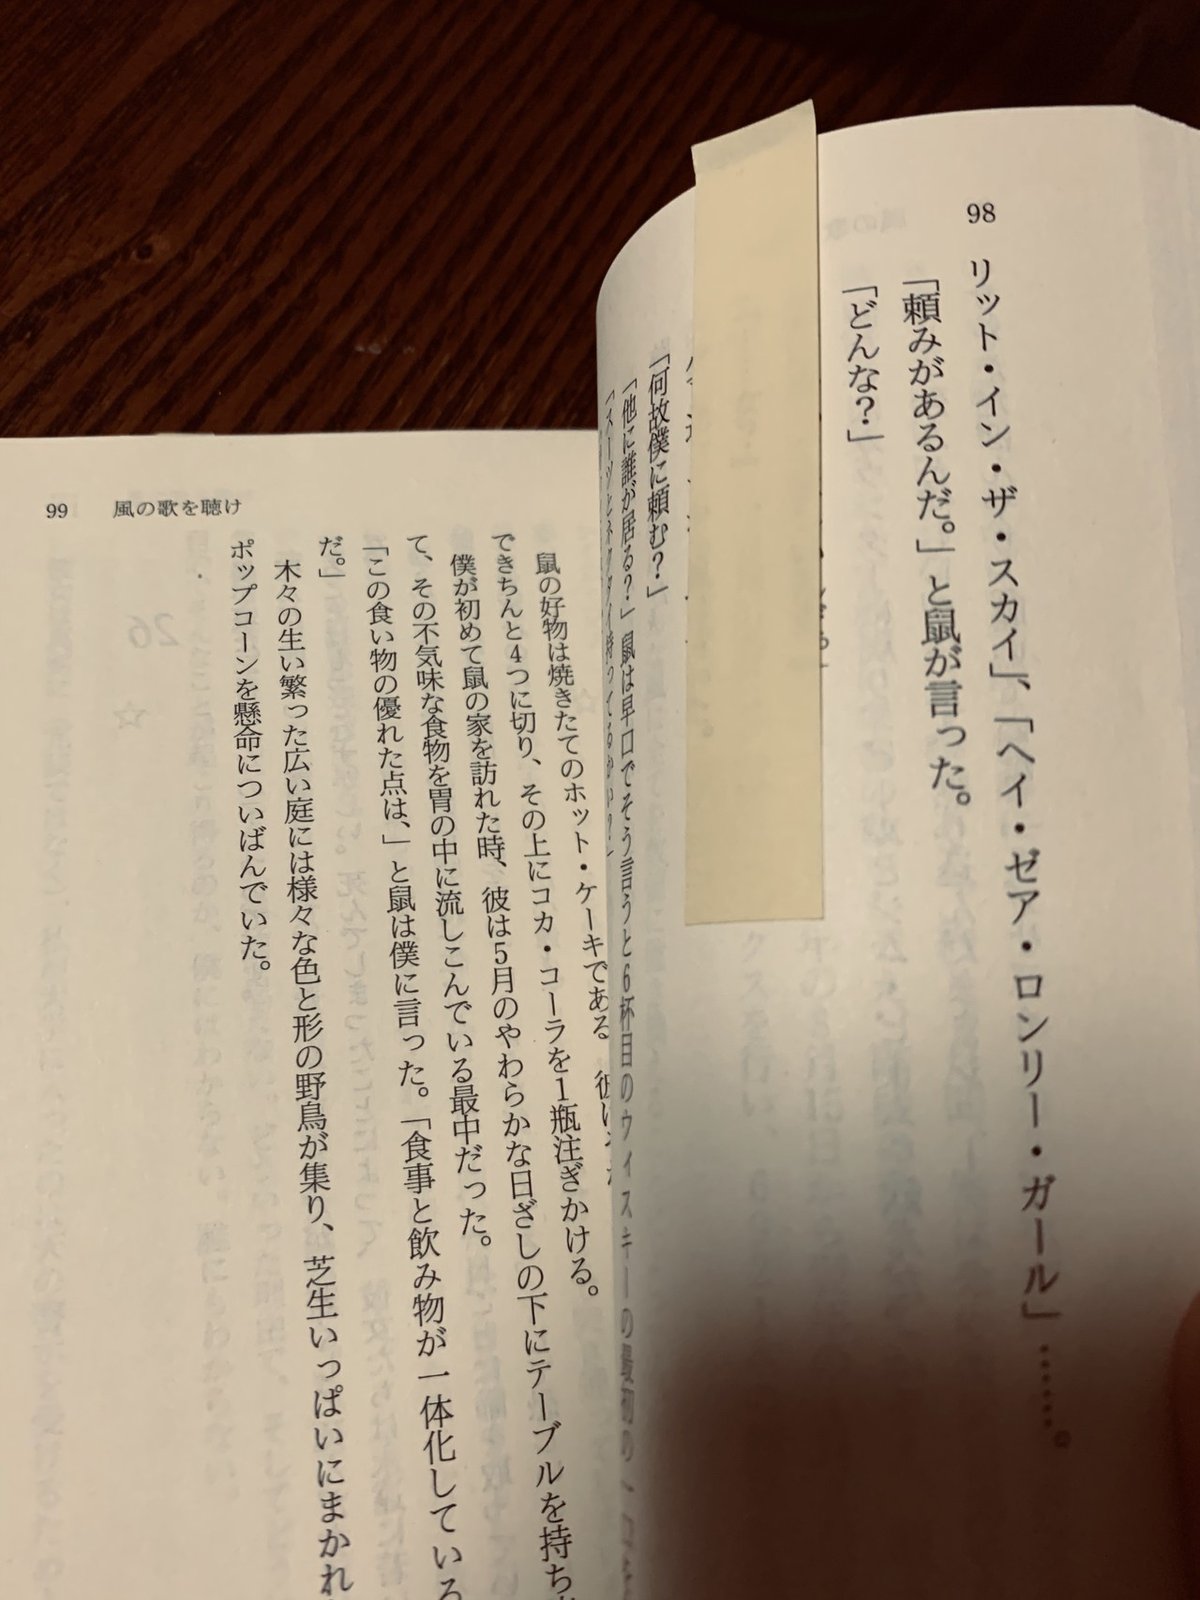 98
リット・イン・ザ・スカイ」、「ヘイ・ゼア・ロンリー・ガール」……。
「頼みがあるんだ。」と鼠が言った。
「どんな?」
「何故僕に頼む?」
「他に誰が居る?」鼠は早口でそう言うと6杯目のウィスキーの最初の
「スーツとネクタイ持ってるかい?」
99 風の歌を聴け
鼠の好物は焼きたてのホット・ケーキである
できちんと4つに切り、その上にコカ・コーラを1瓶注ぎかける。
僕が初めて鼠の家を訪れた時、彼は5月のやわらかな日ざしの下にテーブルを持ち
て、その不気味な食物を胃の中に流しこんでいる最中だった。
「この食い物の優れた点は、」と鼠は僕に言った。「食事と飲み物が一体化している
だ。」
木々の生い繁った広い庭には様々な色と形の野鳥が集り、芝生いっぱいにまかれ
ポップコーンを懸命についばんでいた。